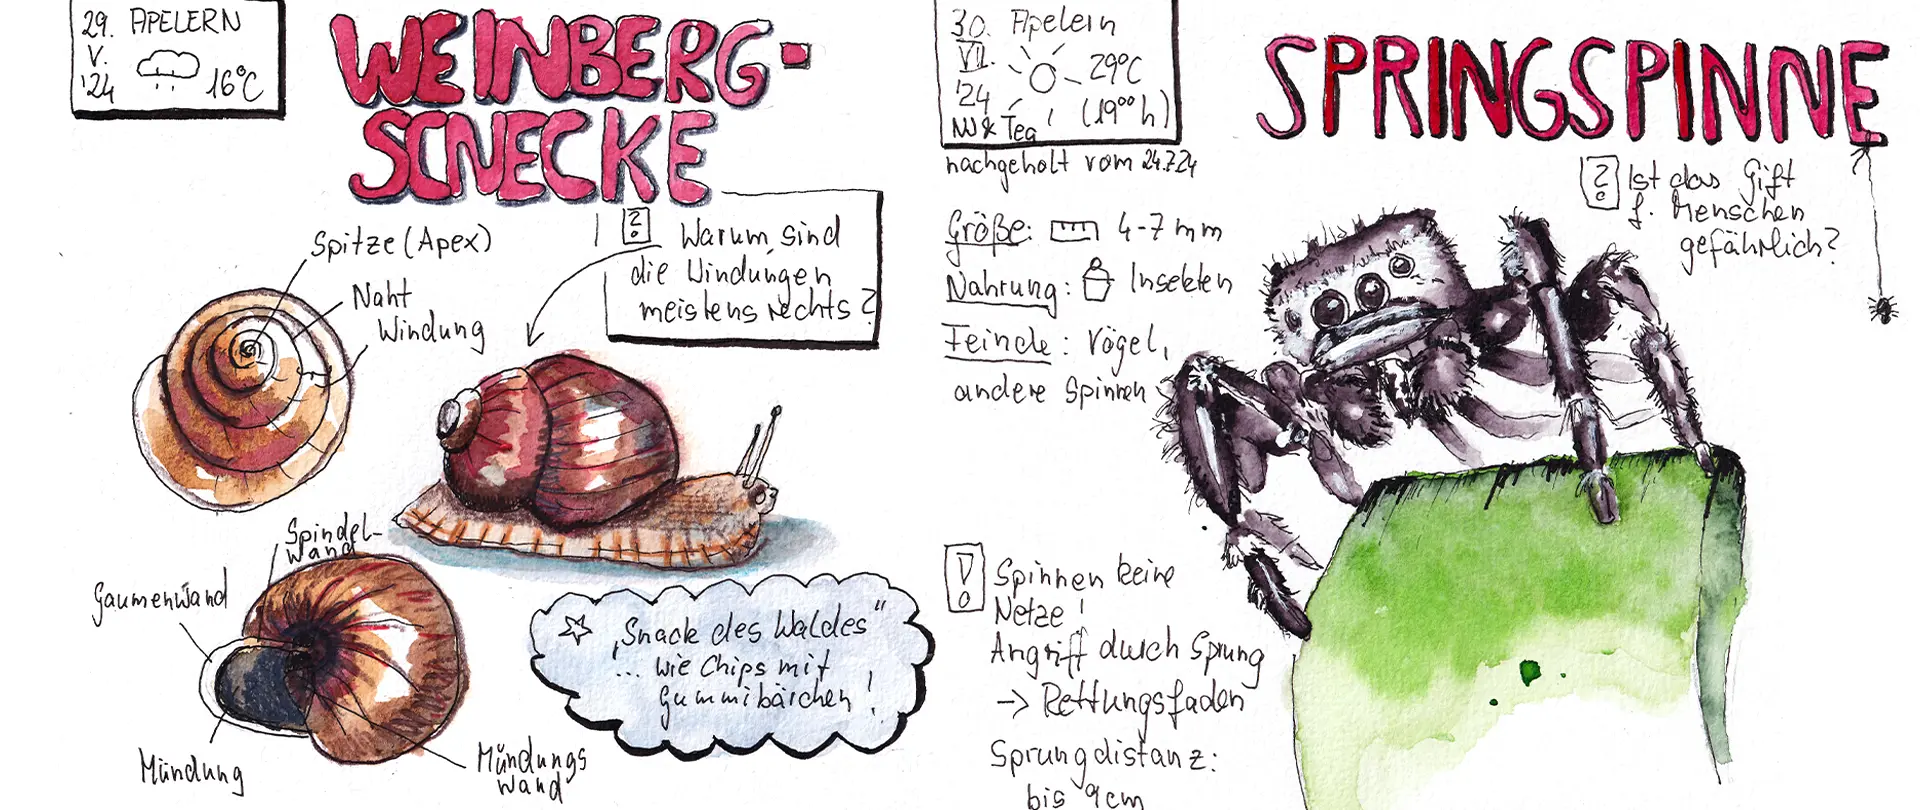 29. APELERN
V.
'24 16°C
WEINBERG-
SCNECKE
Warum sind
die Windungen
meistens rechts?
Spitze (Apex)
Naht
Windung
Spindel-
wand
Gaumenwand
Mündung
Mündungs
wand
„Snack des Waldes"
... wie Chips mit
Gummibärchen!
30. Apelern
VII. 29°C
'24 (19⁰⁰ h)
NJ & Tea
nachgeholt vom 24.7.24
SPRINGSPINNE
? Ist das Gift
f. Menschen
gefährlich?
Größe: 4-7 mm
Nahrung: Insekten
Feinde: Vögel,
andere Spinnen
! Spinnen keine
Netze!
Angriff durch Sprung
→ Rettungsfaden
Sprungdistanz:
bis 9cm